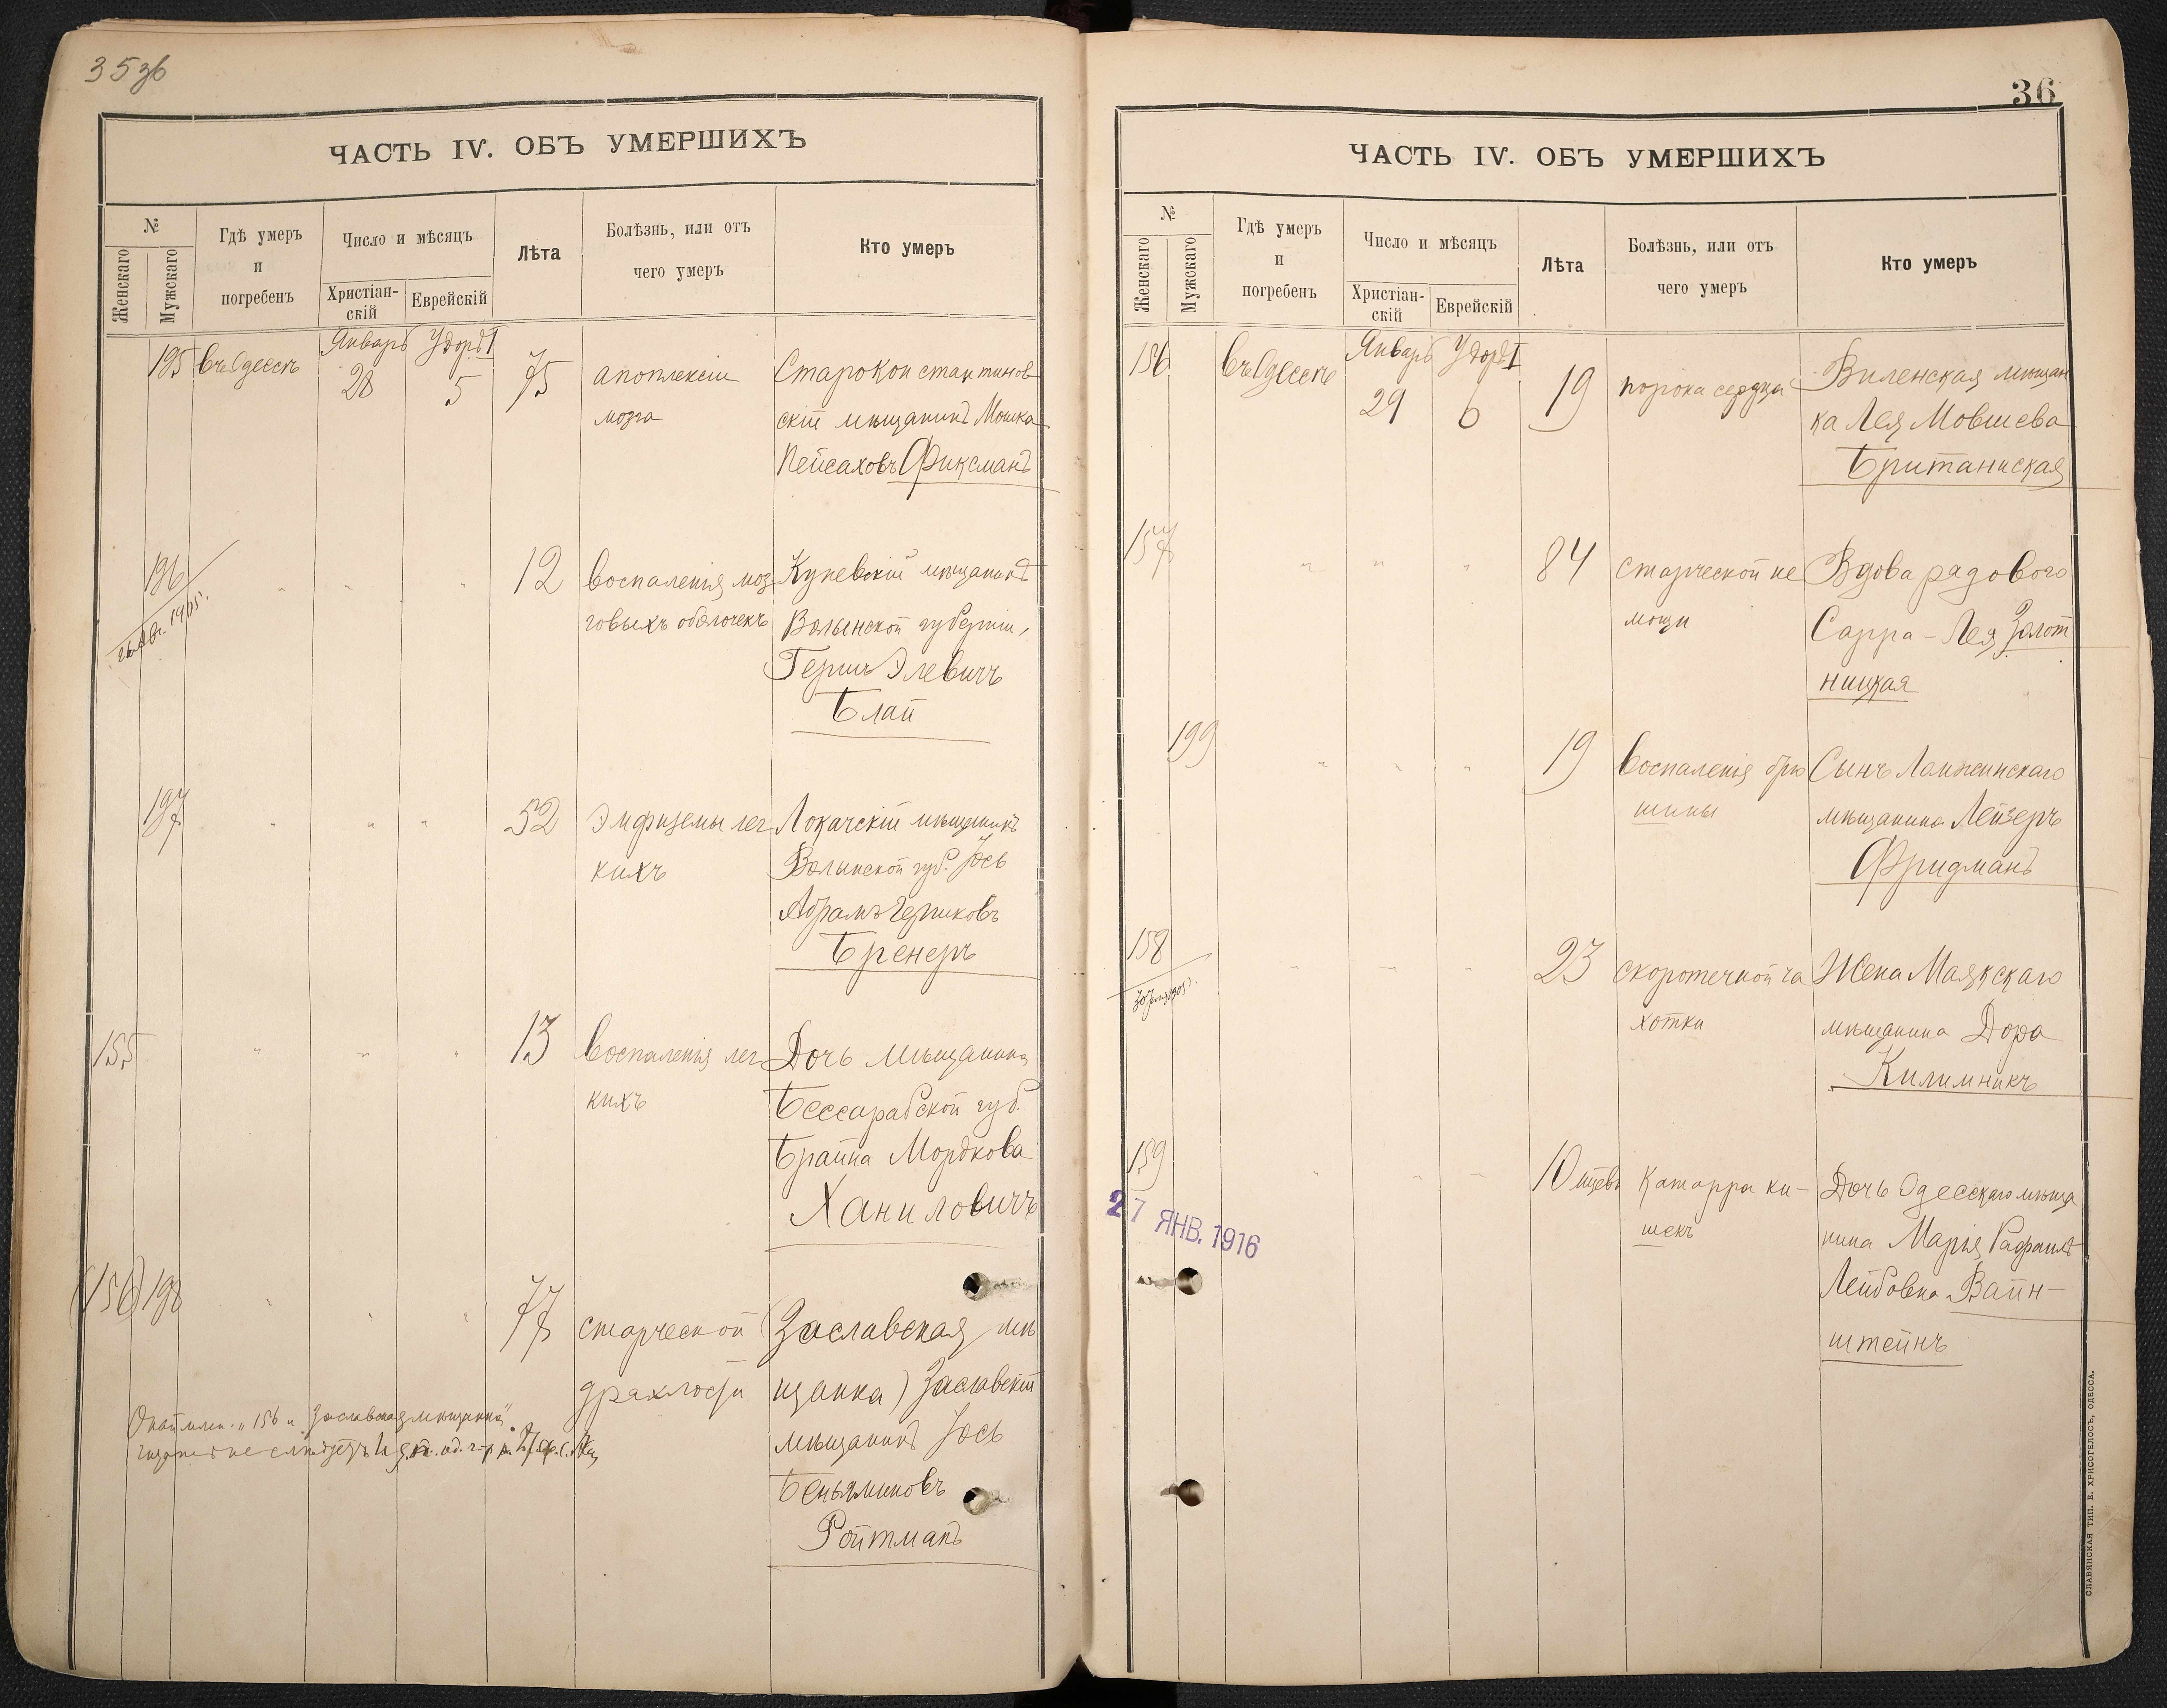 35 зв
ЧАСТЬ IV. ОБЪ УМЕРШИХЪ
№
Женскаго
Мужскаго
Гдѣ умеръ
и
погребенъ
Число и мѣсяцъ
Христіан-
скій
Еврейскій
Лѣта
Болѣзнь, или отъ
чего умеръ
Кто умеръ
195 въ Одессѣ Январь 28 Удоръ I 5 75 апоплексіи Старокон стантинов
мозга скій мѣщанинъ Мошка
Пейсаховъ Фиксманъ
196 " " " 12 воспаленія моз Куневскій мѣщанинъ
1905г. говыхъ оболочекъ Волынской губерніи,
Гершъ Элевичъ
Блай
197 " " " 52 Эмфиземы лег Локачскій мѣщанинъ
кихъ Волынской губ. Іось
Абрамъ Гершковъ
Бренеръ
155 " " " 13 воспаленія лег Дочь мѣщанина
кихъ Бессарабской губ.
Брайна Мордкова
Ханиловичъ
(156) 198 " " " 77 старческой (Заславская мѣ
дряхлости щанка) Заславскій
мѣщанинъ Іось
Беньяминовъ
Ройтманъ
"156 и Заславская мѣщанка"
не слѣдуетъ
36
ЧАСТЬ IV. ОБЪ УМЕРШИХЪ
№
Женскаго
Мужскаго
Гдѣ умеръ
и
погребенъ
Число и мѣсяцъ
Христіан-
скій
Еврейскій
Лѣта
Болѣзнь, или отъ
чего умеръ
Кто умеръ
156 въ Одессѣ Январь 29 Удоръ I 6 19 порока сердца Виленская мѣщан
ка Лея Мовшева
Британиская
157 " " " 84 старческой не Вдова рядового
мощи Сарра-Лея Золот
ницкая
199 " " " 19 воспаленія брю Сынъ Ланжинскаго
шины мѣщанина Лейзеръ
Фридманъ
158 " " " 23 скоротечной ча Жена Маякскаго
1905г. хотки мѣщанина Дора
Килимникъ
159 " " " 10 мцевъ Катарра ки- Дочь Одесскаго мѣща
шекъ нина Марія Рафаилъ
Лейбовна Вайн-
штейнъ
27 ЯНВ. 1916
СЛАВЯНСКАЯ ТИП. Е. ХРИСОГЕЛОСЪ, ОДЕССА.